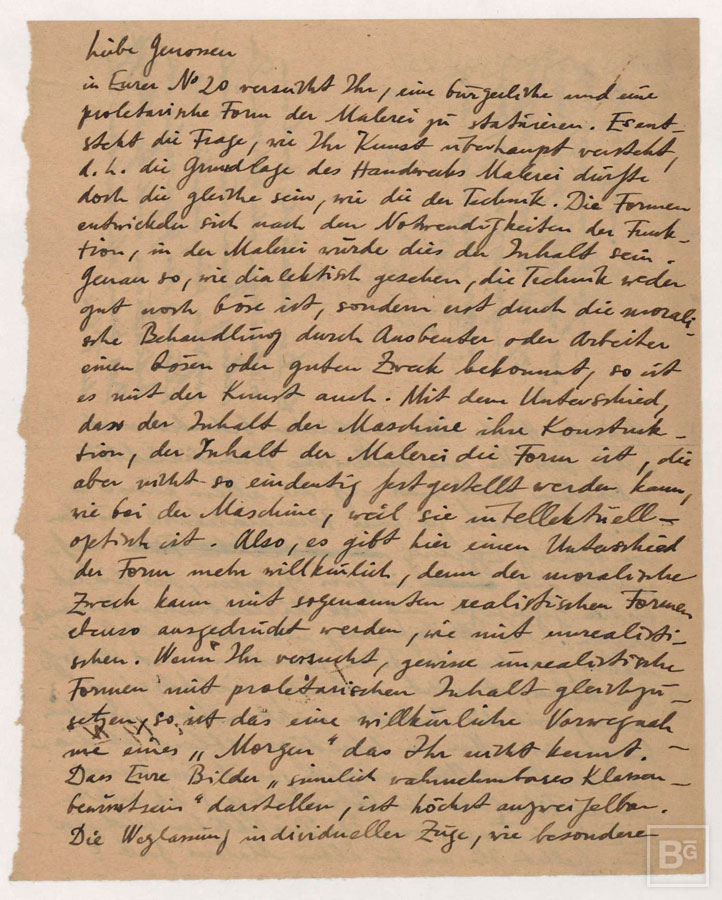 Liebe Genossen
in Eurer No 20 versucht Ihr, eine bürgerliche und eine
proletarische Form der Malerei zu statuieren. Es ent-
steht die Frage, wie Ihr Kunst überhaupt versteht,
d. h. die Grundlage des Handwerks Malerei dürfte
doch die gleiche sein, wie die der Technik. Die Formen
entwickeln sich nach den Notwendigkeiten der Funk-
tion, in der Malerei würde dies der Inhalt sein.
Genau so, wie dialektisch gesehen, die Technik weder
gut noch böse ist, sondern erst durch die morali-
sche Behandlung durch Ausbeuter oder Arbeiter
einen bösen oder guten Zweck bekommt, so ist
es mit der Kunst auch. Mit dem Unterschied,
dass der Inhalt der Maschine ihre Konstruk-
tion, der Inhalt der Malerei die Form ist, die
aber nicht so eindeutig festgestellt werden kann,
wie bei der Maschine, weil sie intellektuell-
optisch ist. Also, es gibt hier einen Unterschied
der Form mehr willkürlich, denn der moralische
Zweck kann mit sogenannten realistischen Formen
ebenso ausgedrückt werden, wie mit unrealisti-
schen. Wenn Ihr versucht, gewisse unrealistische
Formen mit proletarischen Inhalt gleichzu-
setzen, so ist das eine willkürliche Vorwegnah-
me eines „Morgen" das Ihr nicht kennt. -
Dass Eure Bilder „sinnlich wahrnehmbares Klassen-
bewusstsein" darstellen, ist höchst anzweifelbar.
Die Weglassung individueller Züge, wie besondere
BG